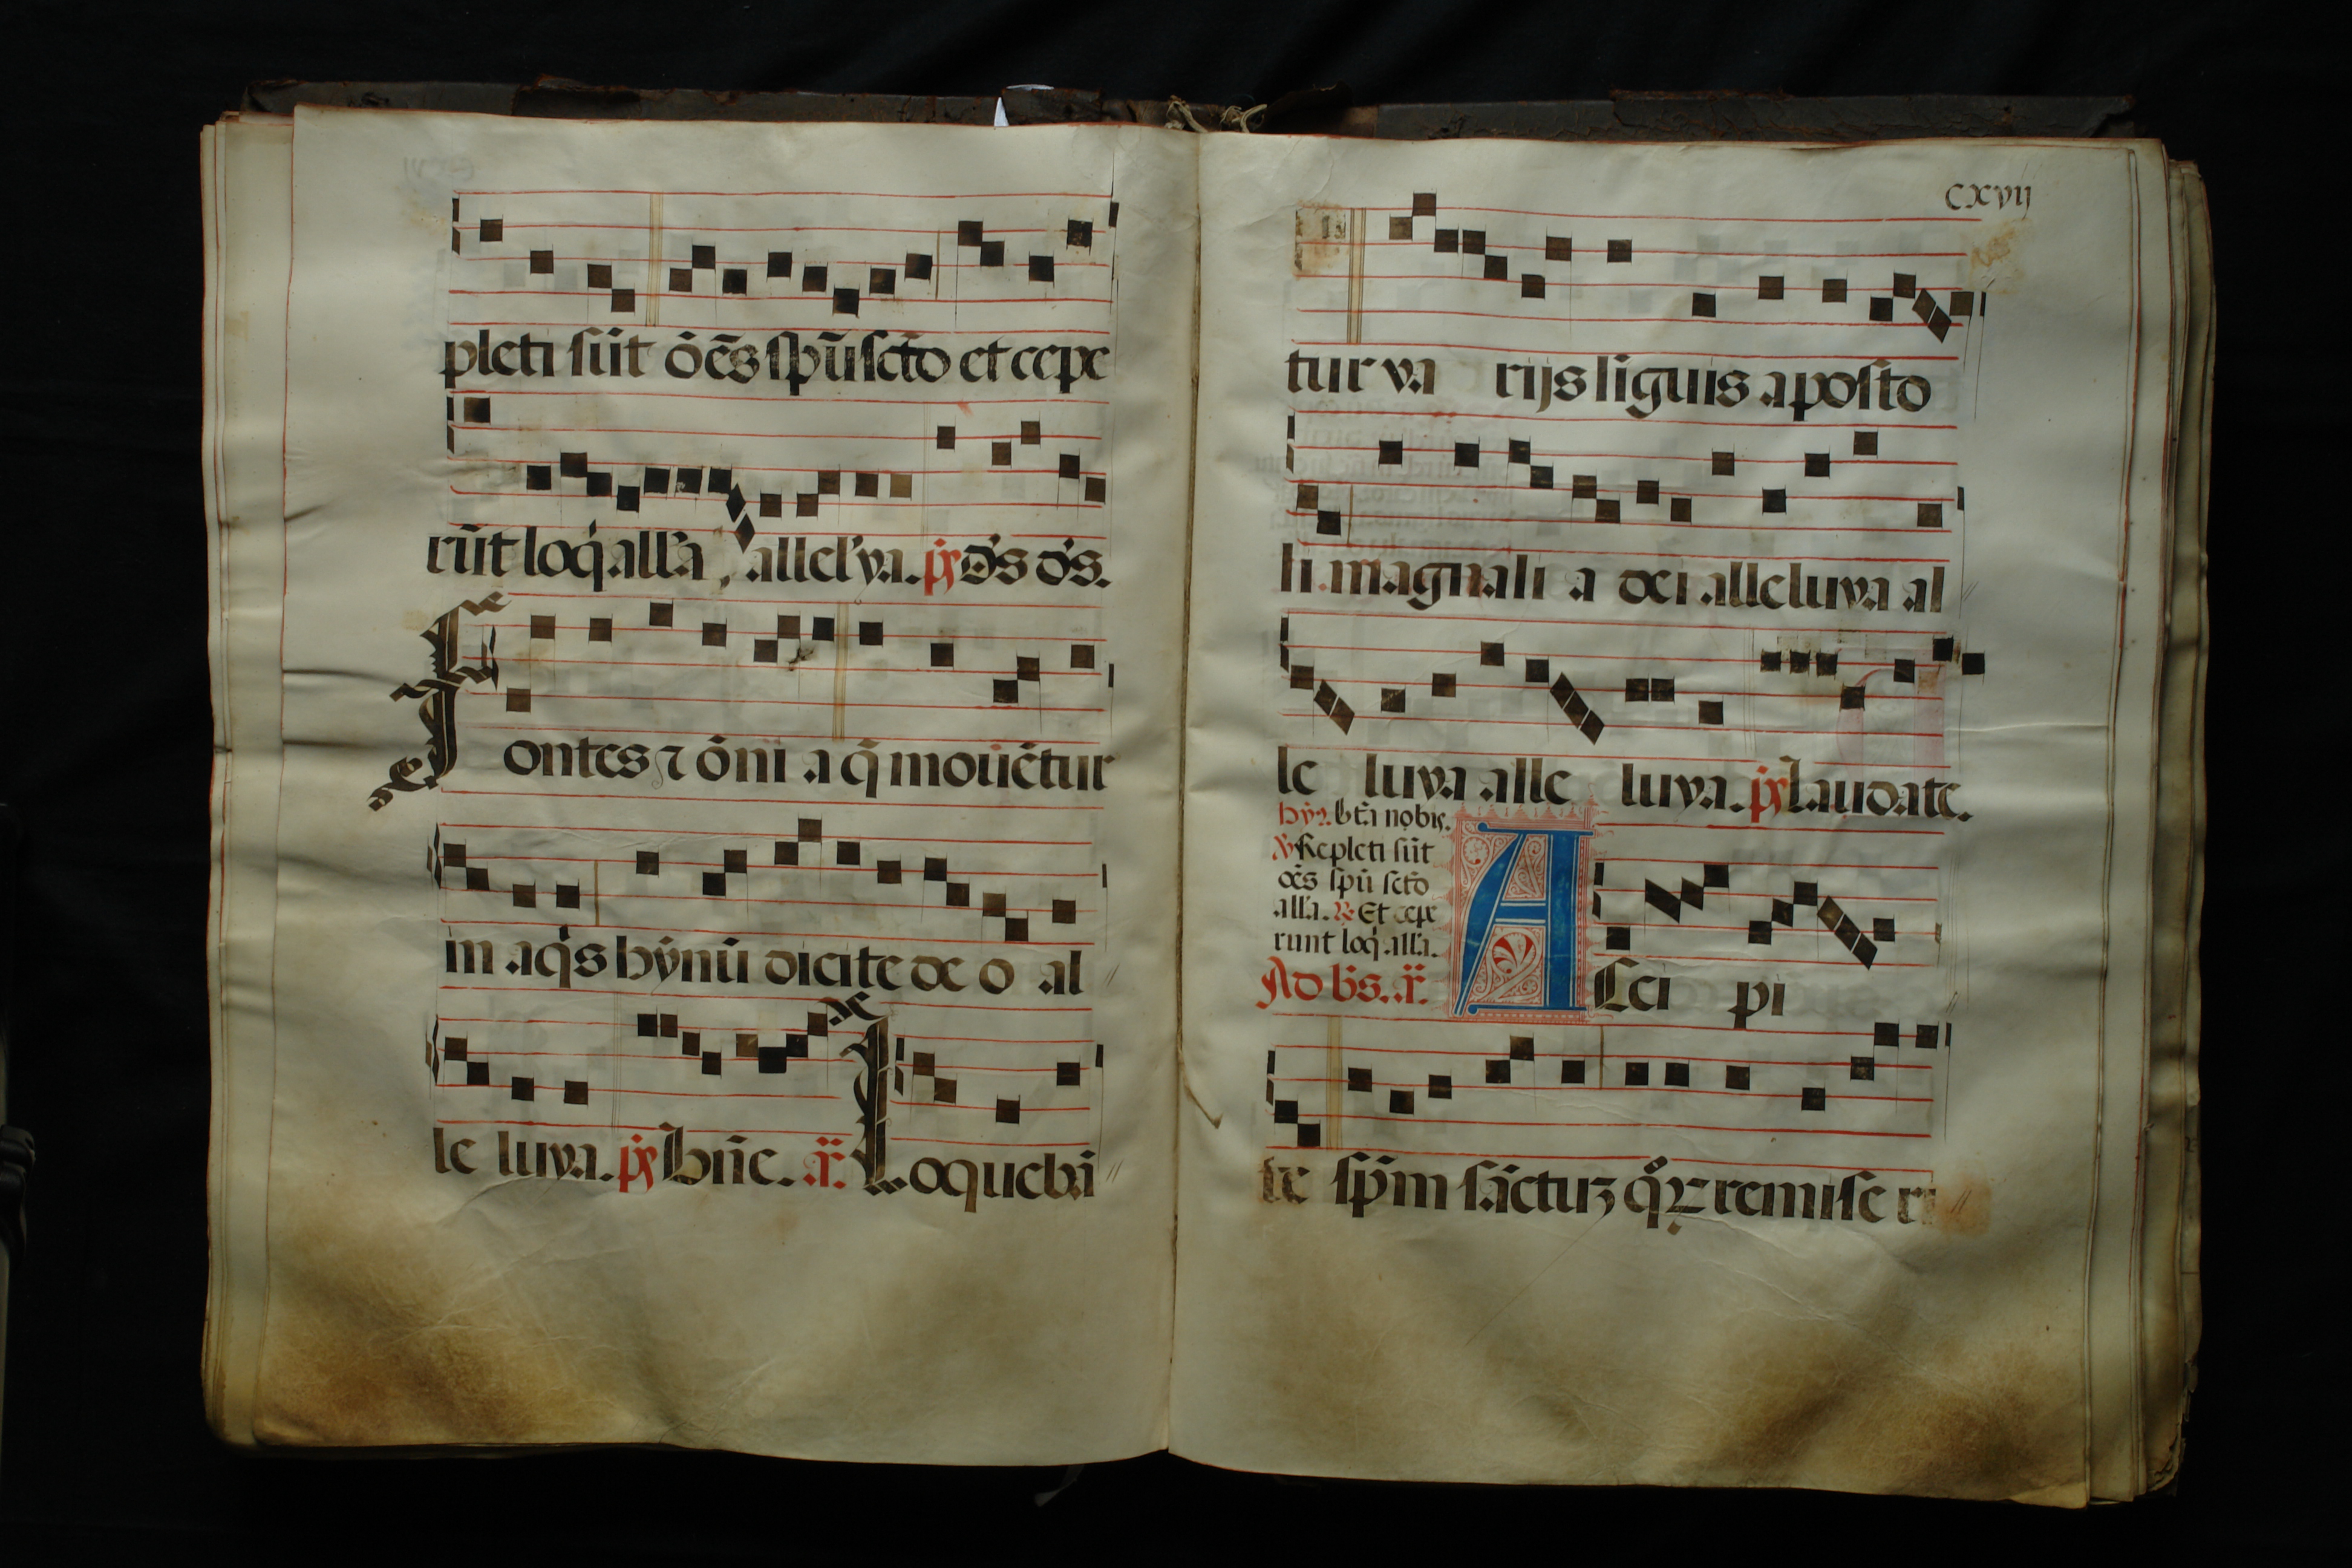 pleti sūt ōēs spūsctō et cepe
rūt loq̇ alĺa, allel'ya. p̄s Ds̄ ds̄.
Fontes ⁊ ōm̄ a q̄ mouētur
in aqṡ hẏnū dicite de o al
le luya. p̄s Bn̄e. a͞. Loquebā
CXVIJ
tur va rijs līguis aposto
li .magnali a dei alleluya al
le luya alle luya. p̄s Laudate.
hȳ. btā nobis.
℣ Repleti sūt
oēs spū sctō
alĺa. ℞ Et cepe
runt loq̇ alĺa.
Ad bs̄. a͞.
ACci pi
te sp̄m sāctuʒ qͦꝝ remise ri